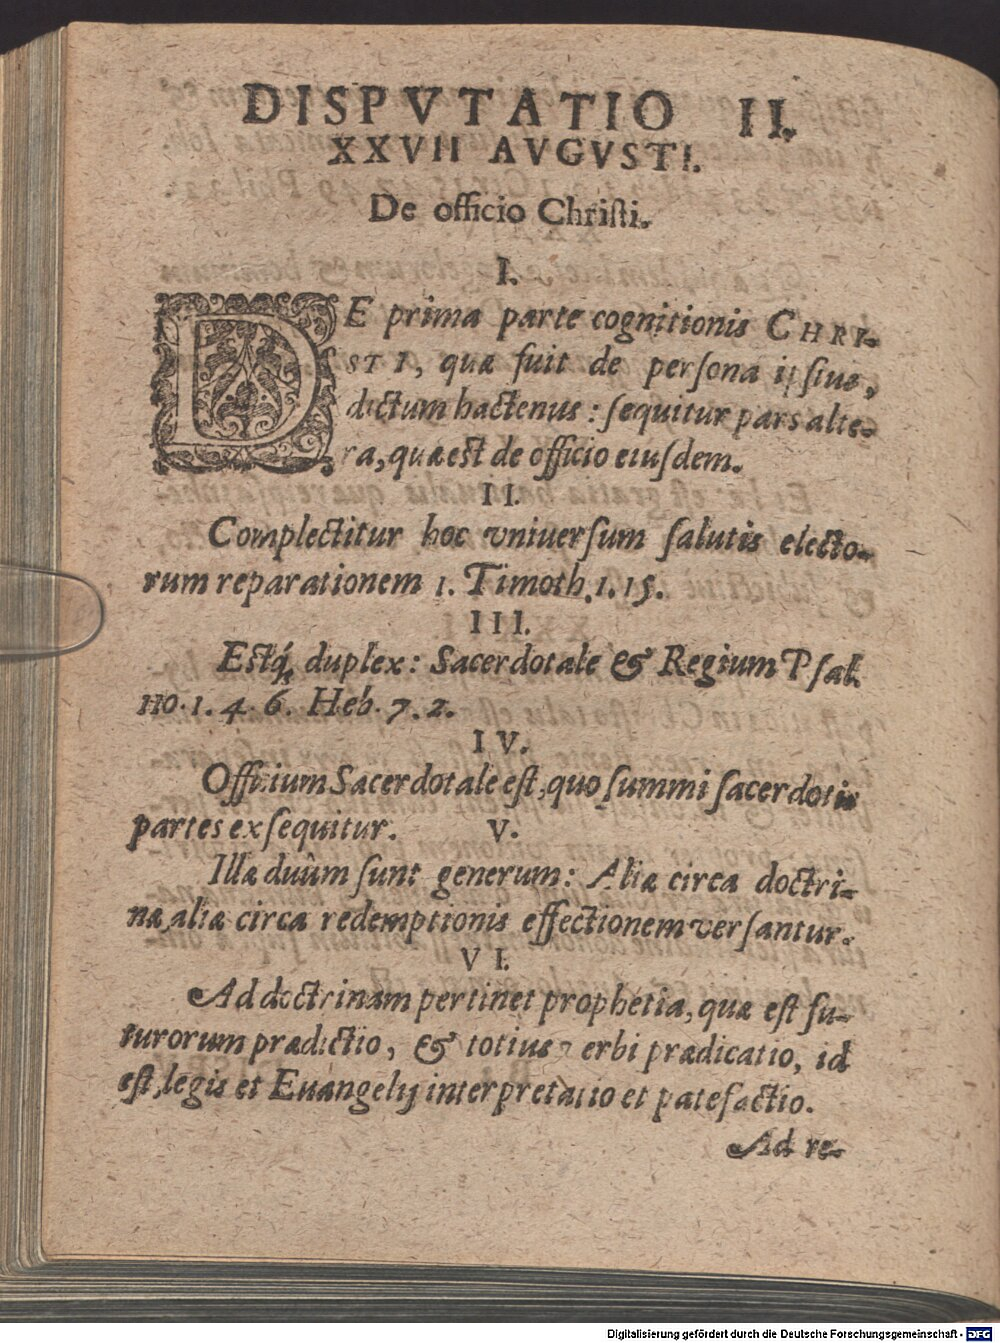 DISPVTATIO II.
XXVII AVGVSTI.
De officio Chriſti.
I.
DE prima parte cognitionis CHRI-
STI, quæ fuit de perſona ipſius,
dictum hactenus: ſequitur pars alte-
ra, quæ est de officio eiuſdem.
II.
Complectitur hoc vniuerſum ſalutis electo-
rum reparationem 1. Timoth. 1. 15.
III.
Estq́ duplex: Sacerdotale & Regium Pſal.
110. 1. 4. 6. Heb. 7. 2.
IV.
Officium Sacerdotale eſt, quo ſummi ſacerdotis
partes exſequitur. V.
Illæ duûm ſunt generum: Aliæ circa doctri-
næ, aliæ circa redemptionis effectionem verſantur.
VI.
Ad doctrinam pertinet prophetia, quæ eſt fu-
turorum prædictio, & totius erbi prædicatio, id
eſt, legis et Euangelij interpretatio et patefactio.
Ad re-
Digitalisierung gefördert durch die Deutsche Forschungsgemeinschaft - DFG